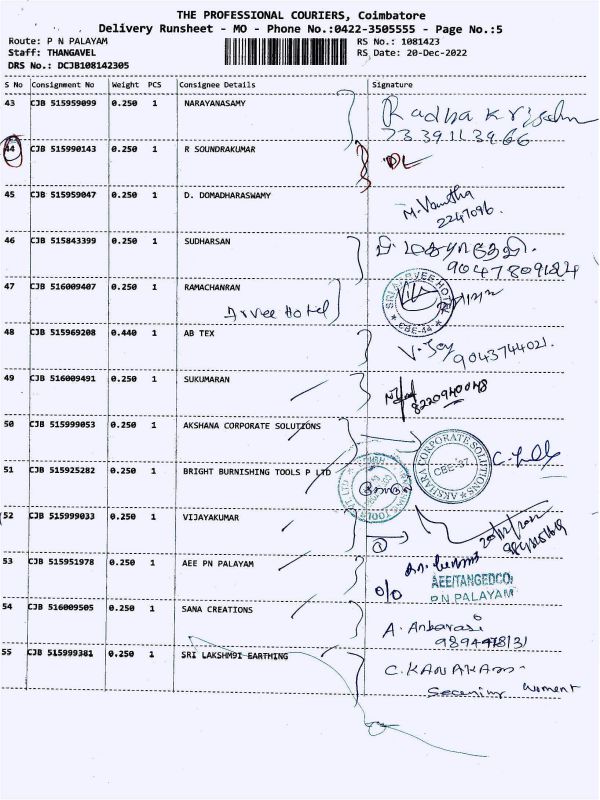 THE PROFESSIONAL COURIERS, Coimbatore
Delivery Runsheet - MO - Phone No.:0422-3505555 - Page No.:5
Route: P N PALAYAM RS No.: 1081423
Staff: THANGAVEL RS Date: 20-Dec-2022
DRS No.: DCJB108142305
S No Consignment No Weight PCS Consignee Details Signature
43 CJB 515959099 0.250 1 NARAYANASAMY
Radha krishn
44 CJB 515990143 0.250 1 R SOUNDRAKUMAR DL
45 CJB 515959047 0.250 1 D. DOMADHARASWAMY
M. Vanitha
2247096.
46 CJB 515843399 0.250 1 SUDHARSAN
47 CJB 516009407 0.250 1 RAMACHANRAN
Arvee Hotel
CBE-44
48 CJB 515969208 0.440 1 AB TEX
V. Joy
9043744021.
49 CJB 516009491 0.250 1 SUKUMARAN
8220940048
50 CJB 515999053 0.250 1 AKSHANA CORPORATE SOLUTIONS
AKSHARA CORPORATE SOLUTIONS
CBE-37
51 CJB 515925282 0.250 1 BRIGHT BURNISHING TOOLS P LTD
52 CJB 515999033 0.250 1 VIJAYAKUMAR
53 CJB 515951978 0.250 1 AEE PN PALAYAM
AEE/TANGEDCO
P.N PALAYAM
54 CJB 516009505 0.250 1 SANA CREATIONS
A. Anbarasi
55 CJB 515999381 0.250 1 SRI LAKSHM9I EARTHING
C. KANAKAM